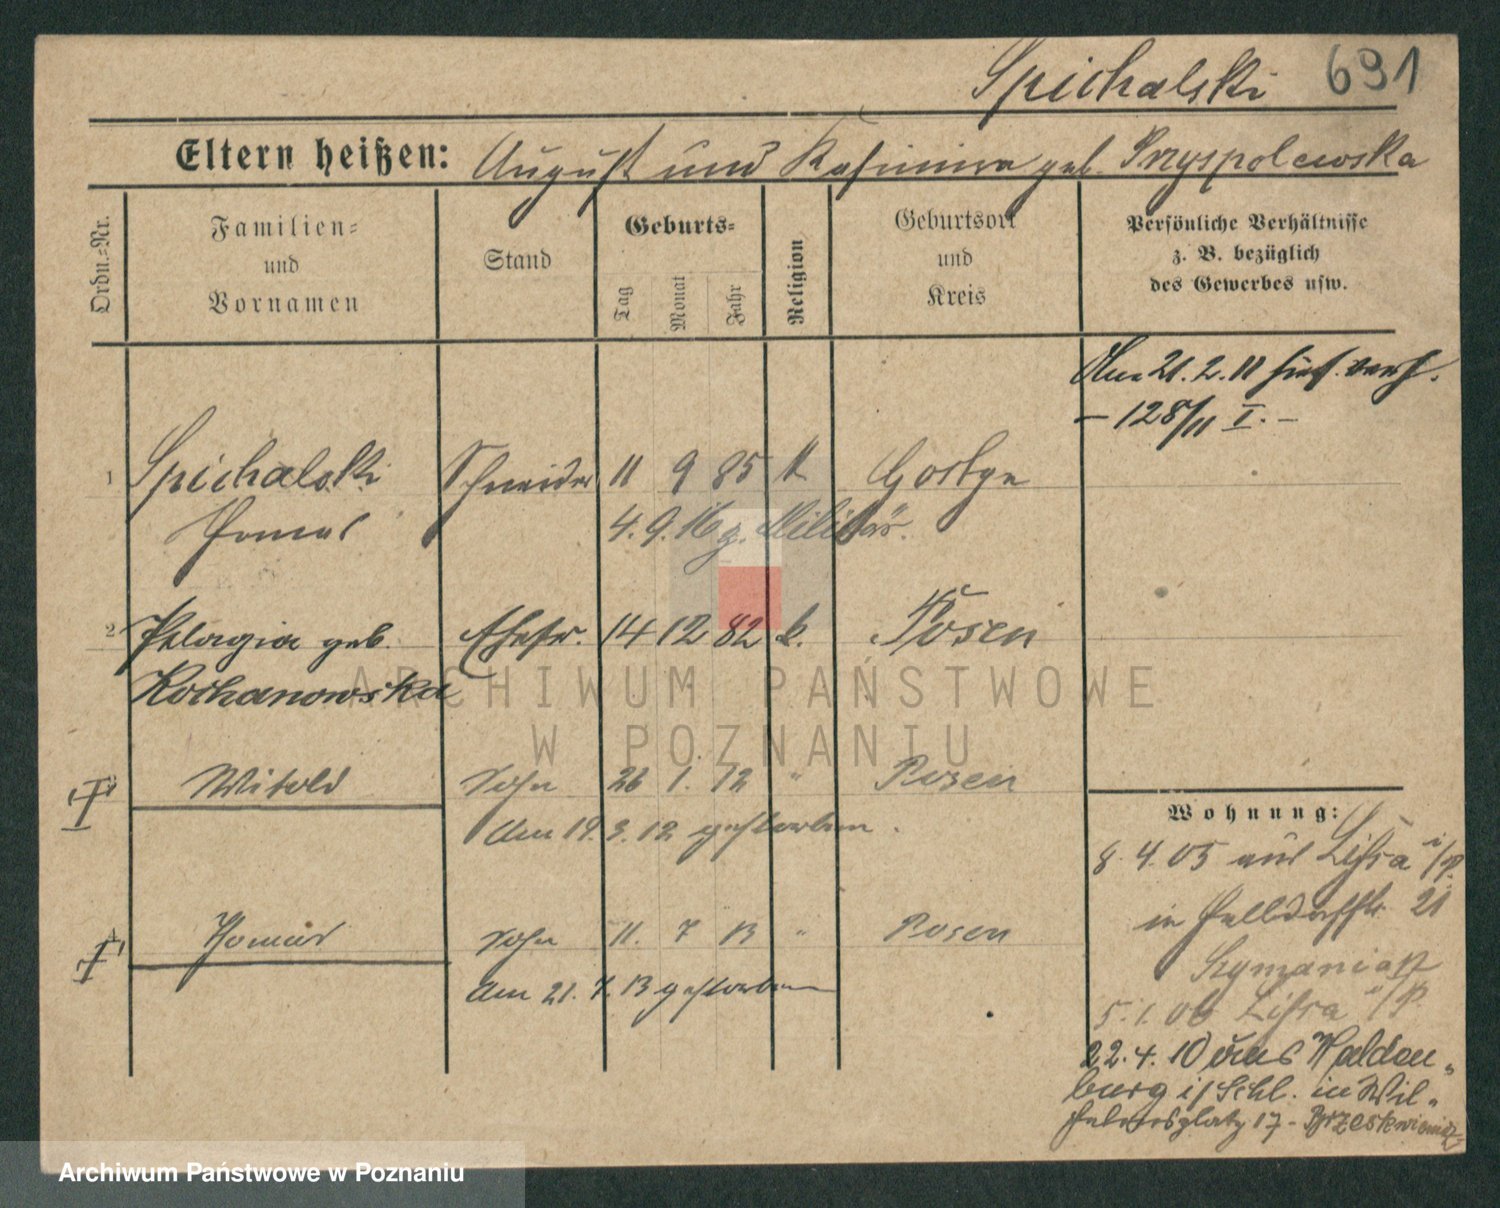 Spichalski 691
Eltern heißen: August und Kasimira geb. Przyspolewska
Ordn.=Nr.
Familien=
und
Vornamen
Stand
Geburts=
Tag
Monat
Jahr
Religion
Geburtsort
und
Kreis
Persönliche Verhältnisse
z. B. bezüglich
des Gewerbes usw.
Am 21.2.11 hies. verh.
- 128/11 I. -
1 Spichalski Schneider 11 9 85 k Gostyn
4.9.16 z. Militär.
2 Pelagia geb. Ehefr. 14 12 82 k. Posen
Kochanowska
Witold Sohn 26 1. 12 " Posen
Am 19.3.12 gestorben.
4 Sohn 11. 7 13 " Posen
Am 21.7.13 gestorben
Wohnung:
8.4.05 aus Lissa i/P.
in 21
Szymaniak
5.1.06 Lissa i/P.
22.4.10 aus Walden=
burg i/Schl. in Wil=
helmsplatz 17 -
ARCHIWUM PAŃSTWOWE
W POZNANIU
Archiwum Państwowe w Poznaniu